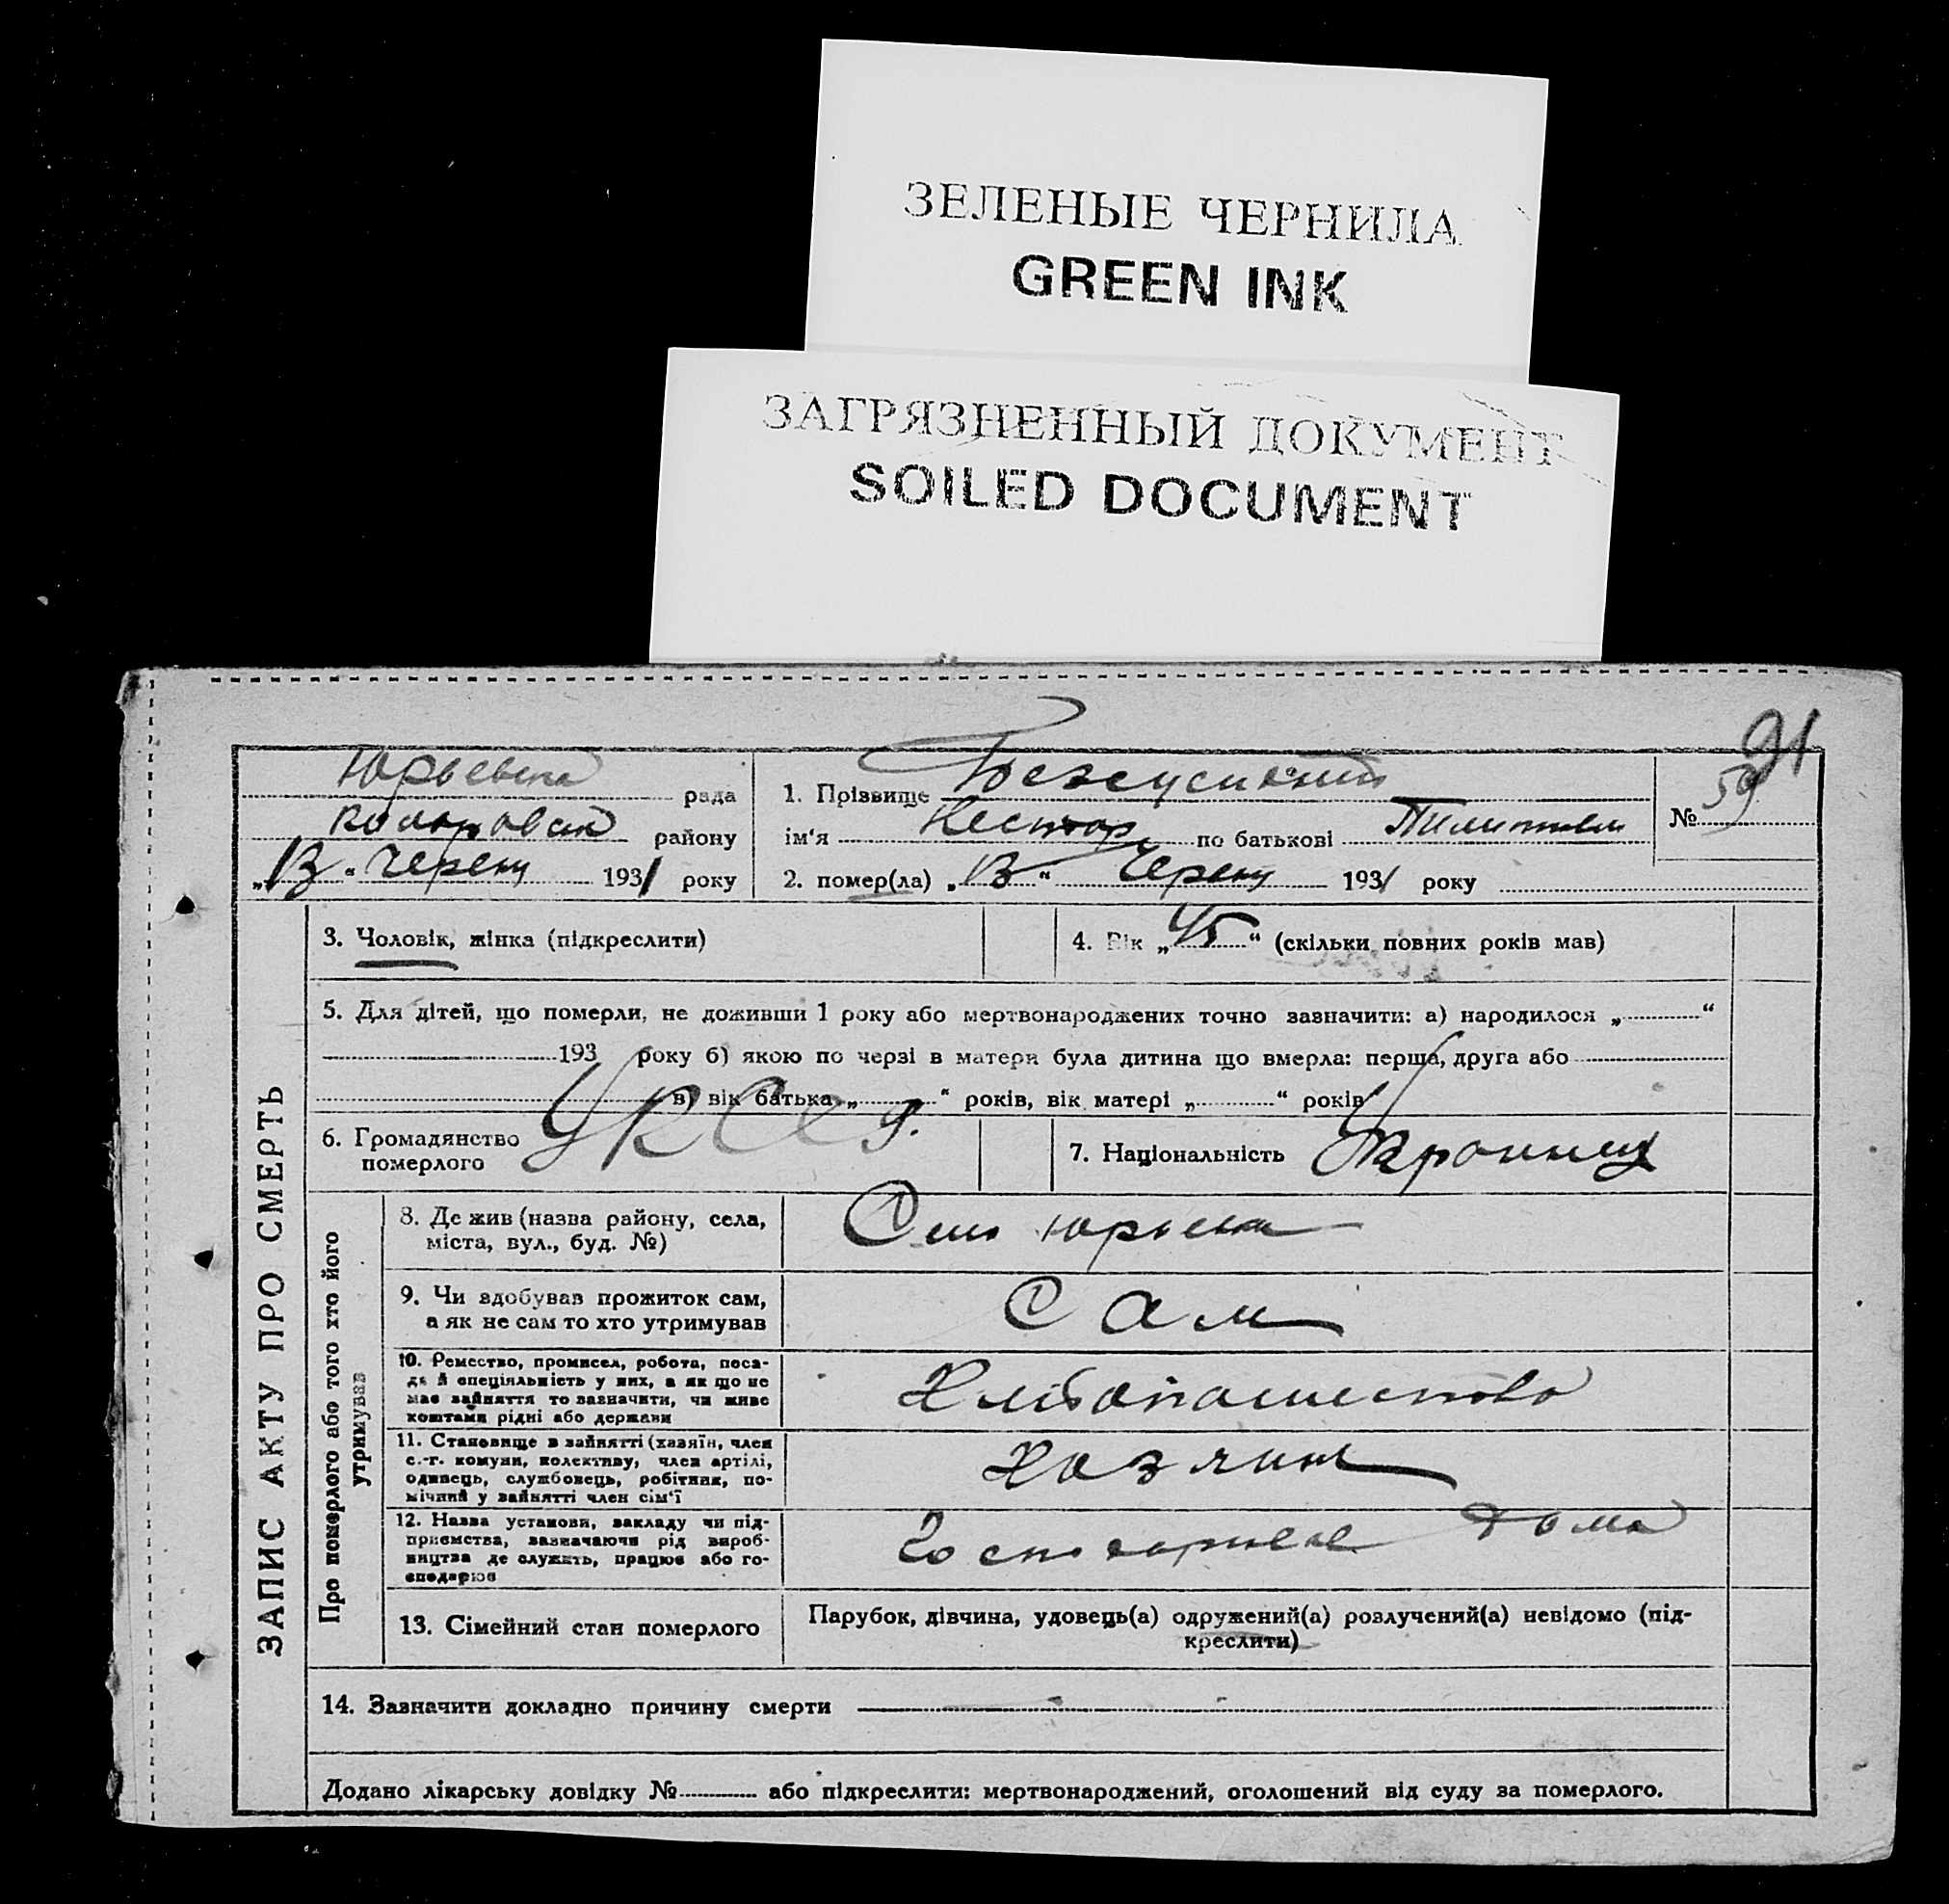 ЗЕЛЕНЫЕ ЧЕРНИЛА
GREEN INK
ЗАГРЯЗНЕННЫЙ ДОКУМЕНТ
SOILED DOCUMENT
91
рада
району
„13“ 1931 року
1. Прізвище
ім‘я Нестор по батькові
2. помер(ла) „13“ 1931 року
№ 59
ЗАПИС АКТУ ПРО СМЕРТЬ
3. Чоловік, жінка (підкреслити)
4. Вік „45“ (скільки повних років мав)
5. Для дітей, що померли, не доживши 1 року або мертвонароджених точно зазначити: а) народилося „ “
193 року б) якою по черзі в матери була дитина що вмерла: перша, друга або
в) вік батька „ “ років, вік матері „ “ років
6. Громадянство
померлого
7. Національність
Про померлого або того хто його
утримував
8. Де жив (назва району, села,
міста, вул., буд. №)
Село
9. Чи здобував прожиток сам,
а як не сам то хто утримував
Сам
10. Ремество, промисел, робота, поса-
да й спеціяльність у них, а як що не
має зайняття то зазначити, чи живе
коштами рідні або держави
11. Становище в зайнятті (хазяїн, член
с.-г. комуни, колективу, член артілі,
одинець, службовець, робітник, по-
мічний у зайнятті член сім‘ї
Хозяин
12. Назва установи, закладу чи під-
приємства, зазначаючи рід вироб-
ництва де служить, працює або го-
сподарює
дома
13. Сімейний стан померлого
Парубок, дівчина, удовець(а) одружений(а) розлучений(а) невідомо (під-
креслити)
14. Зазначити докладно причину смерти
Додано лікарську довідку № або підкреслити: мертвонароджений, оголошений від суду за померлого.